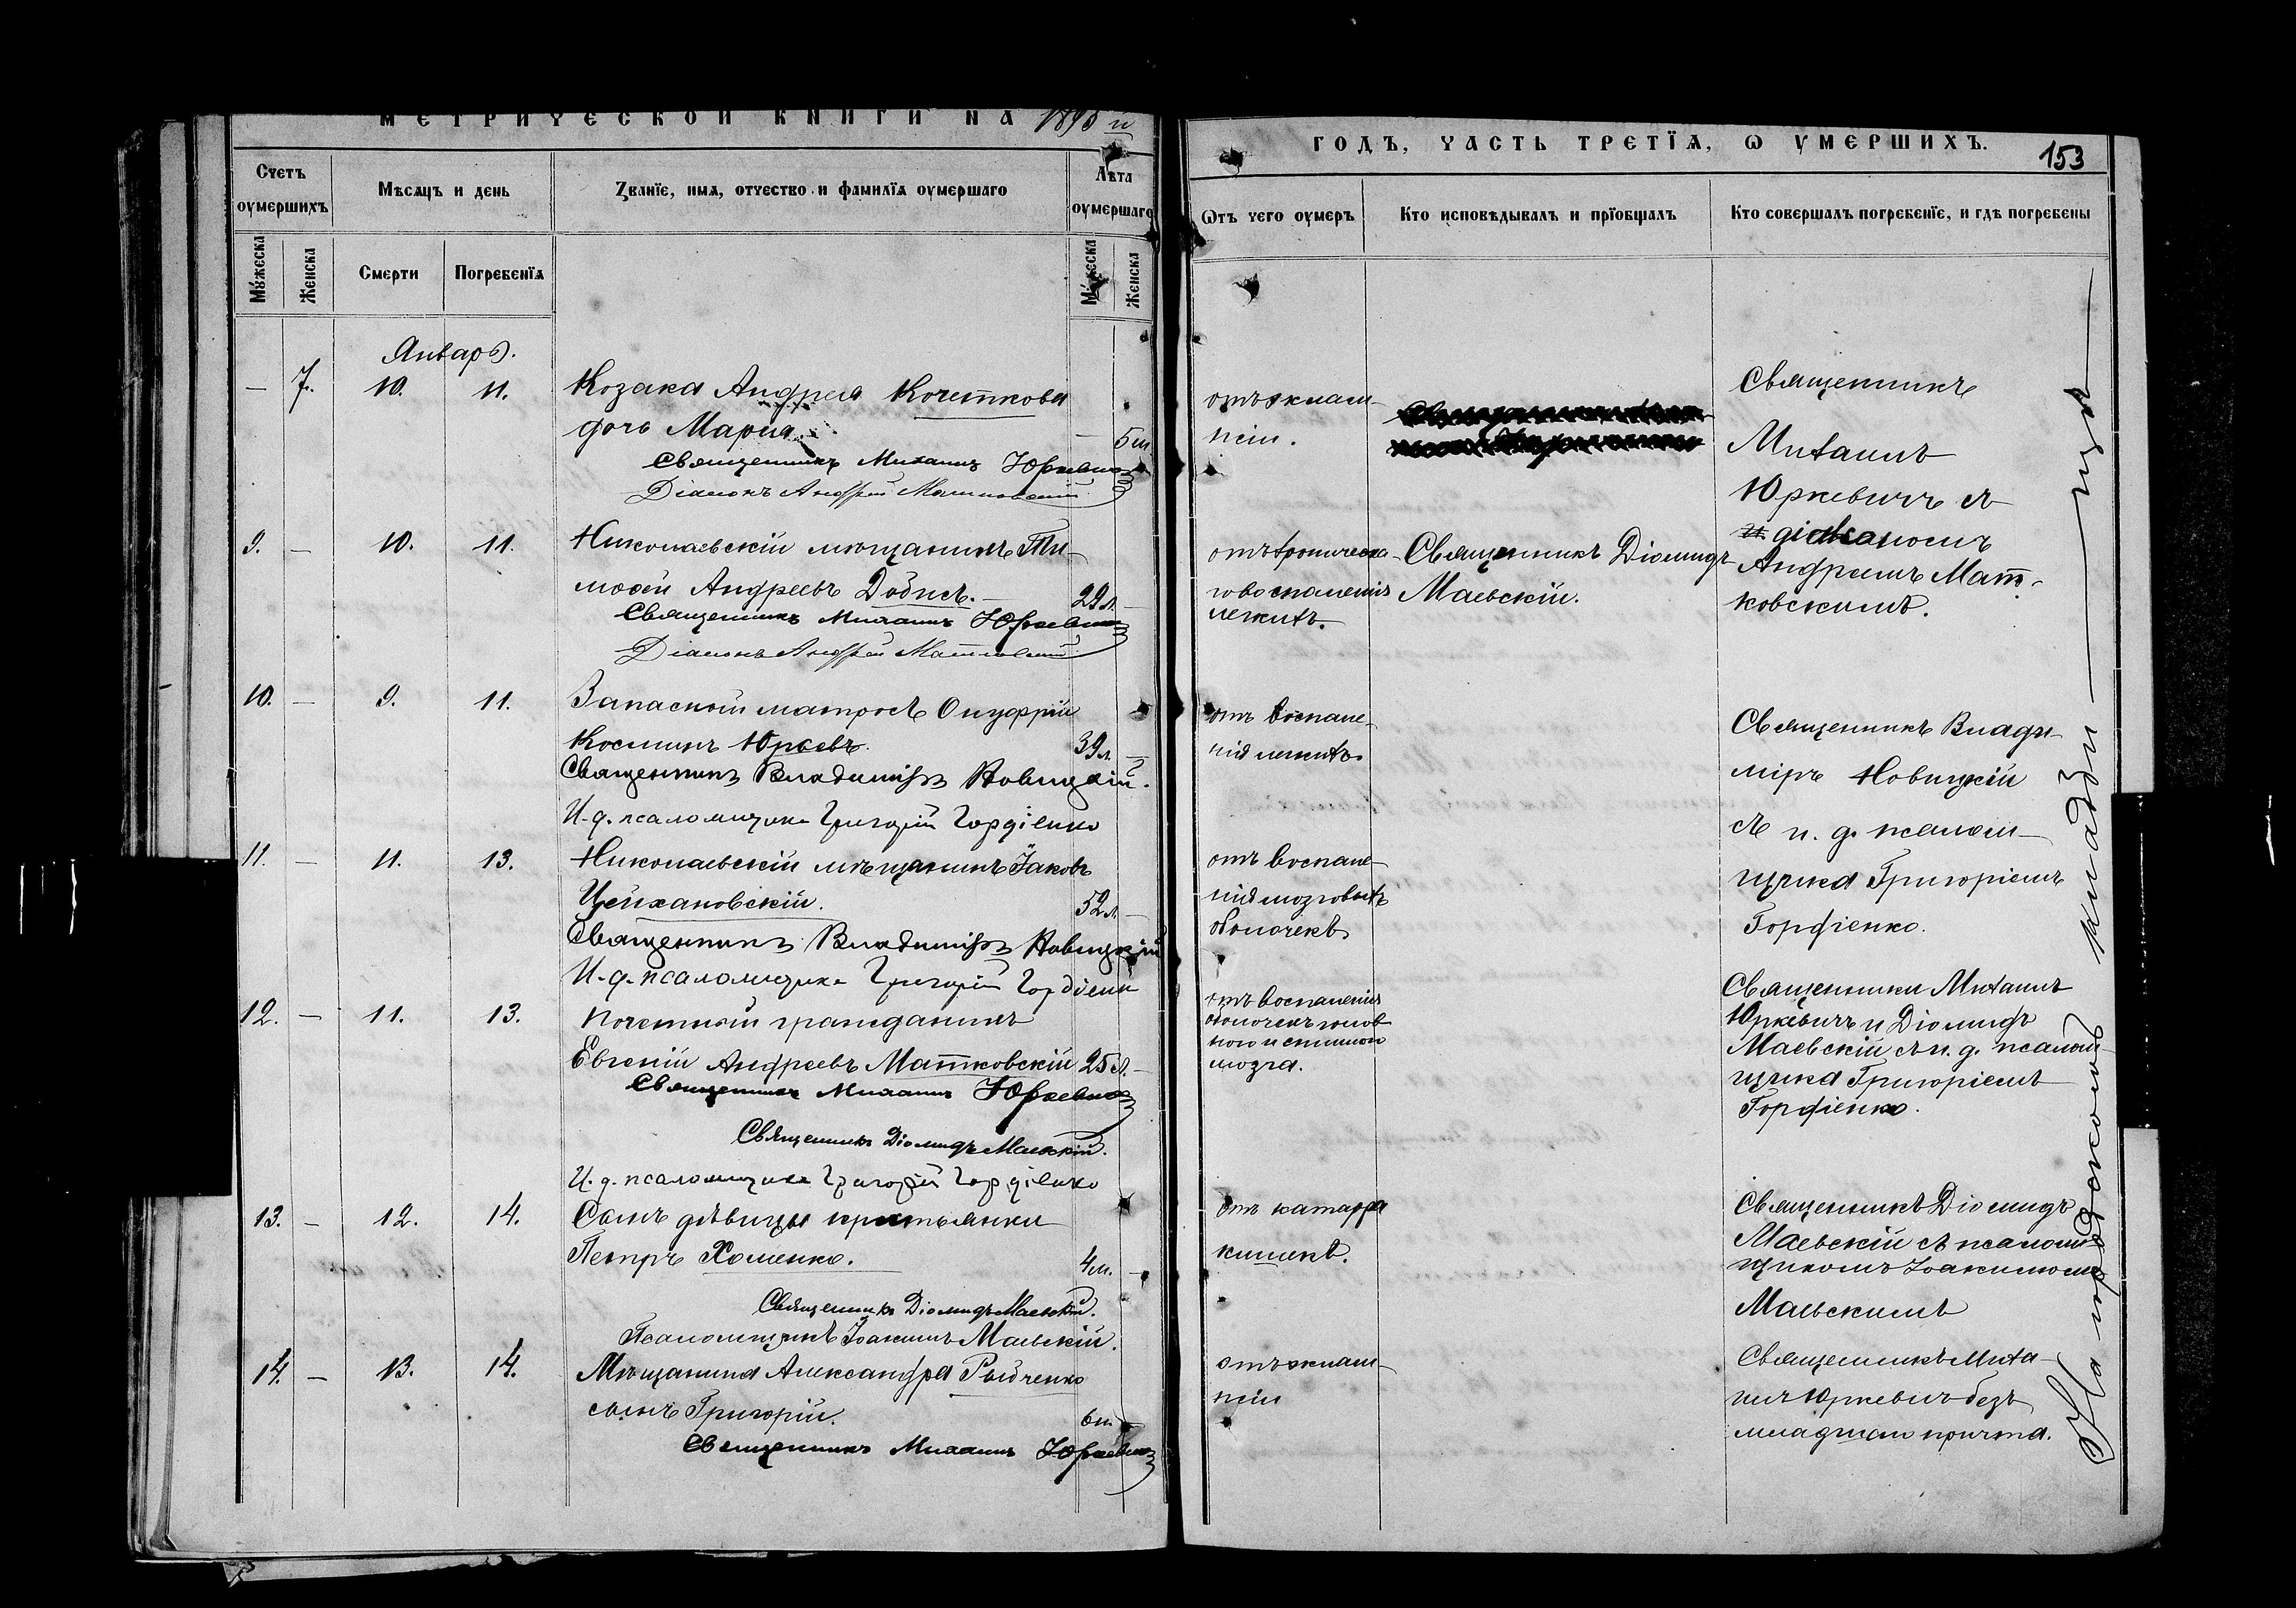 МЕТРИЧЕСКОЙ КНИГИ НА 1890 й
Счетъ оумершихъ
Мѣсяцъ и день
Званіе, имя, отчество и фамилія оумершаго
Лѣта оумершаго
Мужеска
Женска
Смерти
Погребенія
Мужеска
Женска
Январь.
— 7. 10. 11. Козака Андрея Кочеткова
дочь Марія. — 5 м
Священникъ Михаилъ Юркевичъ
Діаконъ Андрей Матковскій
9. — 10. 11. Николаевскій мѣщанинъ Ти-
моѳей Андреевъ Добисъ. — 29 л. —
Священникъ Михаилъ Юркевичъ
Діаконъ Андрей Матковскій
10. — 9. 11. Запасной матросъ Онуфрій
Косминъ Юрьевъ. 39 л. —
Священникъ Владиміръ Новицкій.
И. д. псаломщика Григорій Гордіенко
11. — 11. 13. Николаевскій мѣщанинъ Іаковъ
Цейхановскій. 52 л. —
Священникъ Владиміръ Новицкій
И. д. псаломщика Григорій Гордіенко
12. — 11. 13. Почетный гражданинъ
Евгеній Андреевъ Матковскій 25 л. —
Священникъ Михаилъ Юркевичъ
Священникъ Діомидъ Маевскій.
И. д. псаломщика Григорій Гордіенко
13. — 12. 14. Сынъ дѣвицы крестьянки
Петръ Хоменко. 4 м. —
Священникъ Діомидъ Маевскій.
Псаломщикъ Іоакимъ Маевскій.
14. — 13. 14. Мѣщанина Александра Рыбченко
сынъ Григорій. 6 м. —
Священникъ Михаилъ Юркевичъ
ГОДЪ, ЧАСТЬ ТРЕТІЯ, Ѡ УМЕРШИХЪ.
153
Ѿтъ чего оумеръ
Кто исповѣдывалъ и пріобщалъ
Кто совершалъ погребеніе, и гдѣ погребены
отъ эклам-
псіи.
Священникъ
Михаилъ
Юркевичъ съ
діакономъ
Андреемъ Мат-
ковскимъ.
отъ хроническа-
го воспаленія
легкихъ.
Священникъ Діомидъ
Маевскій.
отъ воспале-
нія легкихъ
Священникъ Влади-
міръ Новицкій
съ и. д. псалом-
щика Григоріемъ
Гордіенко.
отъ воспале-
нія мозговыхъ
оболочекъ
отъ воспаленія
оболочекъ голов
ного и спинного
мозга.
Священники Михаилъ
Юркевичъ и Діомидъ
Маевскій съ и. д. псалом-
щика Григоріемъ
Гордіенко.
отъ катарра
кишекъ.
Священникъ Діомидъ
Маевскій съ псалом-
щикомъ Іоакимомъ
Маевскимъ
отъ эклам-
псіи
Священникъ Миха-
илъ Юркевичъ безъ
младшаго причта.
На городскомъ кладби — щѣ —